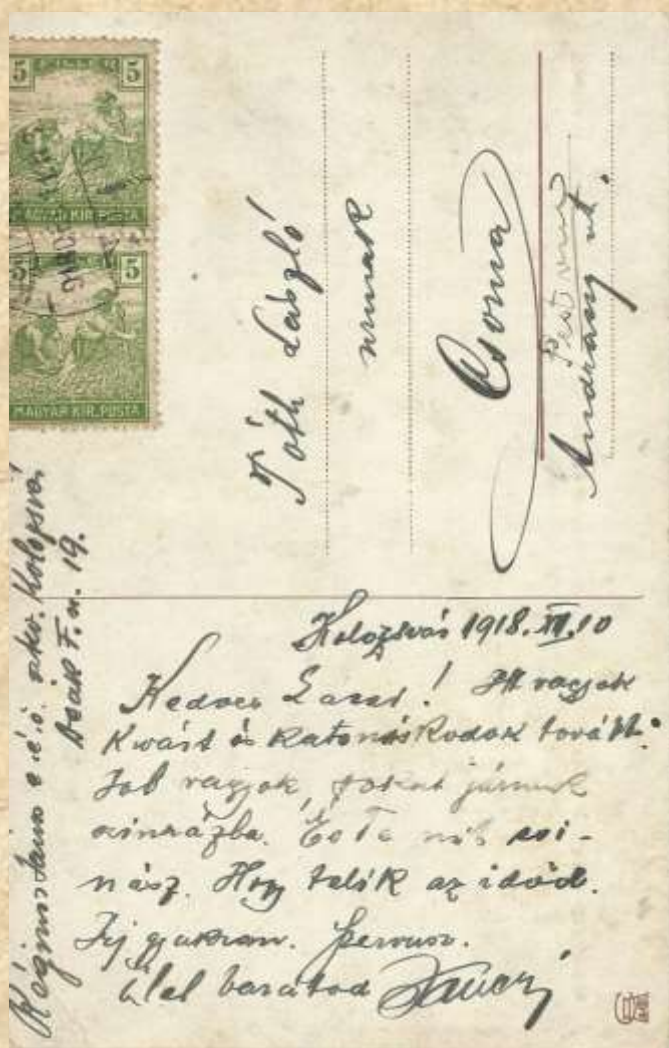 5 FILLÉR 5
MAGYAR KIR. POSTA
5 5
MAGYAR KIR. POSTA
Tóth László
urnak
Csorna
Pest
Andrássy ut.
János e. é. ö. Kolozsvár
Deák F. u. 19.
Kolozsvár 1918. XI. 10
Kedves Laczi! Itt vagyok
Kvárt és Katonáskodok tovább.
Jól vagyok, sokat járunk
szinházba. És Te mit csi-
nász. Hogy telik az időd.
Irj gyakran. Servusz.
Ölel barátod Janczi